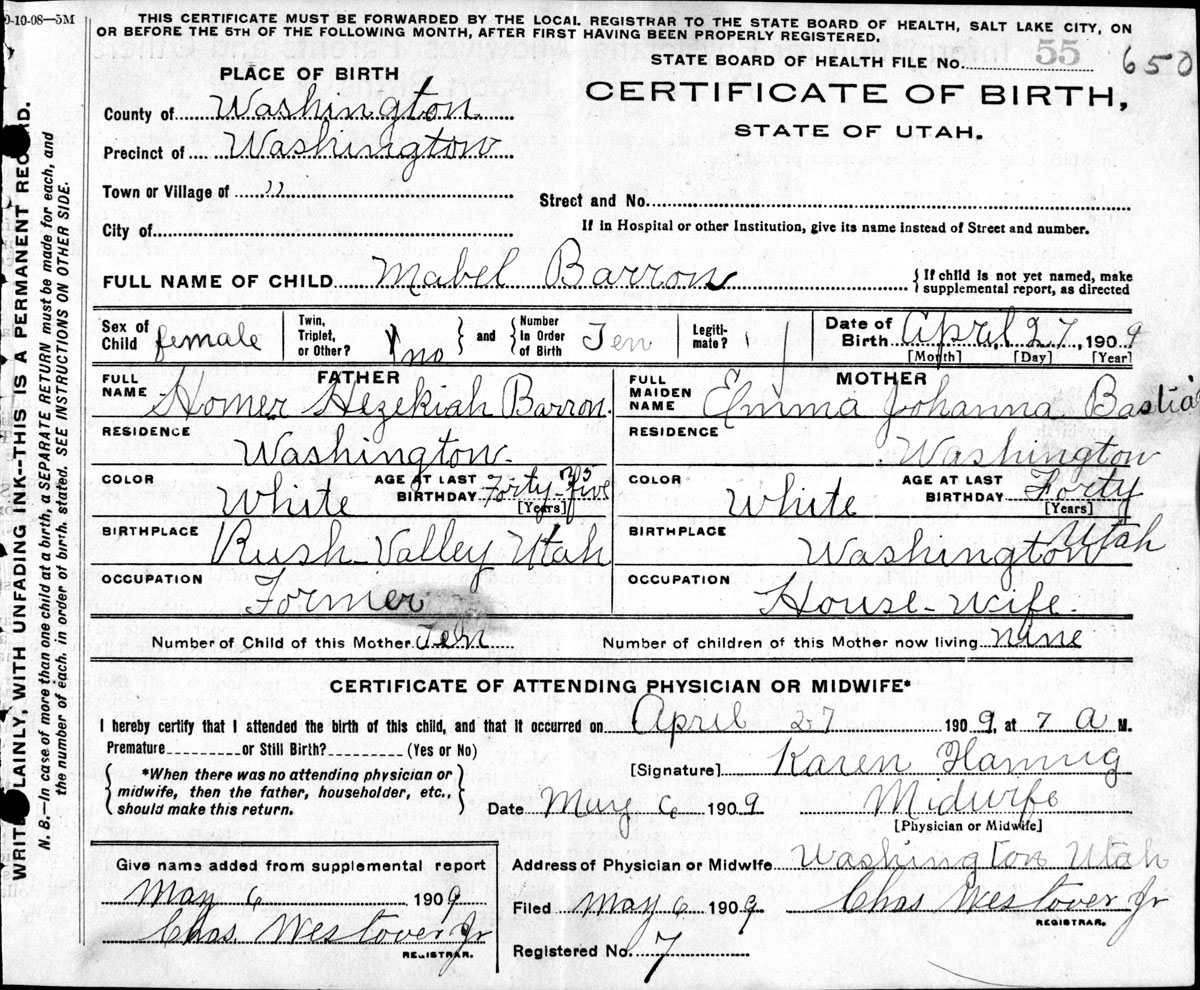 9-10-08—5M
THIS CERTIFICATE MUST BE FORWARDED BY THE LOCAL REGISTRAR TO THE STATE BOARD OF HEALTH, SALT LAKE CITY, ON
OR BEFORE THE 5TH OF THE FOLLOWING MONTH, AFTER FIRST HAVING BEEN PROPERLY REGISTERED.
STATE BOARD OF HEALTH FILE No. 55 650
PLACE OF BIRTH
CERTIFICATE OF BIRTH,
STATE OF UTAH.
County of Washington
Precinct of Washington
Town or Village of "
Street and No.
City of
If in Hospital or other Institution, give its name instead of Street and number.
FULL NAME OF CHILD Mabel Barron
{ If child is not yet named, make
supplemental report, as directed
Sex of Child female
Twin, Triplet, or Other? no } and { Number In Order of Birth Ten
Legiti-mate?
Date of Birth April 27, 1909
[Month] [Day] [Year]
FATHER
FULL NAME Homer Hezekiah Barron.
RESIDENCE Washington.
COLOR White AGE AT LAST BIRTHDAY Forty-five
[Years]
BIRTHPLACE Rush Valley Utah
OCCUPATION Former
MOTHER
FULL MAIDEN NAME Emma Johanna Bastia
RESIDENCE Washington
COLOR White AGE AT LAST BIRTHDAY Forty
[Years]
BIRTHPLACE Washington Utah
OCCUPATION House-wife.
Number of Child of this Mother Ten
Number of children of this Mother now living nine
CERTIFICATE OF ATTENDING PHYSICIAN OR MIDWIFE*
I hereby certify that I attended the birth of this child, and that it occurred on April 27 1909, at 7 A M.
Premature or Still Birth? (Yes or No)
{ *When there was no attending physician or
midwife, then the father, householder, etc.,
should make this return. }
[Signature] Karen Hannig
Date May 6 1909
Midwife
[Physician or Midwife]
Give name added from supplemental report
May 6 1909
Chas. Westover Jr
REGISTRAR.
Address of Physician or Midwife Washington Utah
Filed May 6 1909 Chas Westover Jr
REGISTRAR.
Registered No. 7
WRITE PLAINLY, WITH UNFADING INK--THIS IS A PERMANENT RECORD.
N. B.—In case of more than one child at a birth, a SEPARATE RETURN must be made for each, and
the number of each, in order of birth, stated. SEE INSTRUCTIONS ON OTHER SIDE.